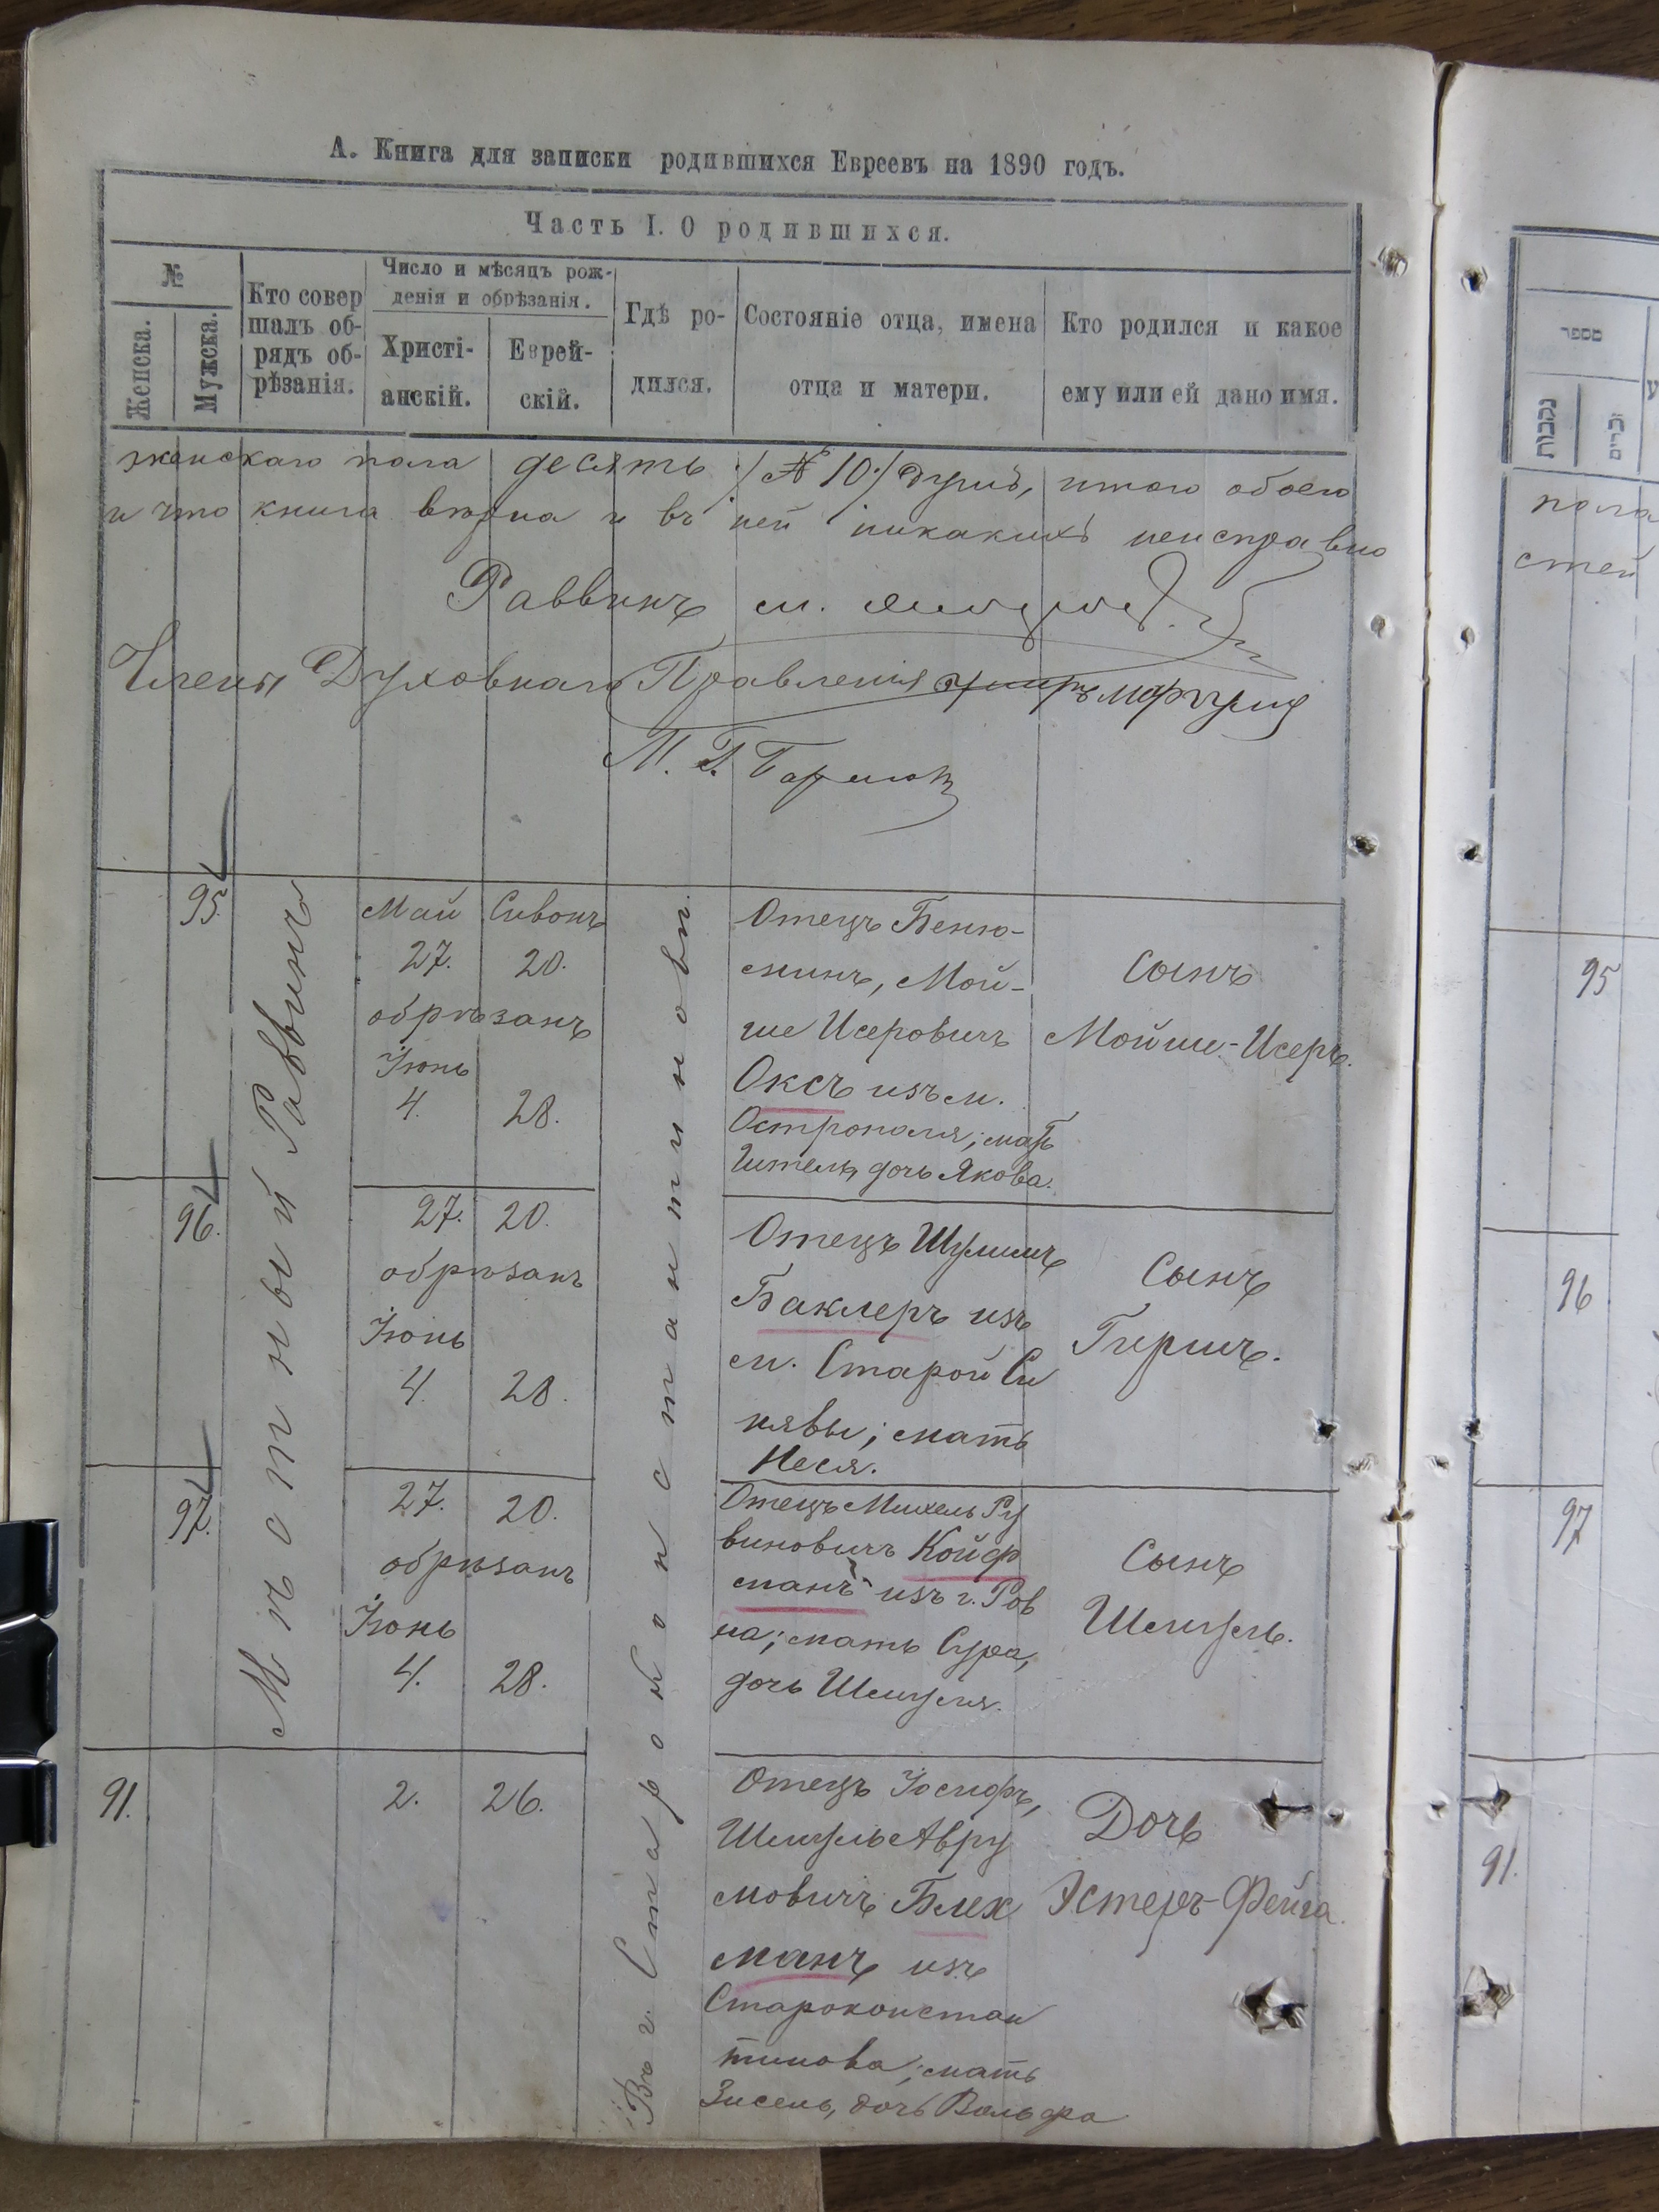 А. Книга для записки родившихся Евреевъ на 1890 годъ.
Часть I. О родившихся.
№
Женска.
Мужска.
Кто совер
шалъ об-
рядъ об-
рѣзанія.
Число и мѣсяцъ рож-
денія и обрѣзанія.
Христі-
анскій.
Еврей-
скій.
Гдѣ ро-
дился.
Состояніе отца, имена
отца и матери.
Кто родился и какое
ему или ей дано имя.
женскаго пола десять /№ 10/ душъ, итого обоего
и что книга вѣрна и въ ней никакихъ неисправно
Раввинъ м.
Члены Духовнаго Правленія
М. Г.
Мѣстный Раввинъ
Въ г. Староконстантиновѣ.
95.
Май Сивонъ
27. 20.
обрѣзанъ
Іюнь
4. 28.
Отецъ Беню-
минъ, Мой-
ше Исеровичъ
Оксъ изъ м.
Острополя; мать
Ител, дочь Якова.
Сынъ
Мойше-Исеръ.
96.
27. 20.
обрѣзанъ
Іюнь
4. 28.
Отецъ Шулимъ
Баклеръ изъ
м. Старой Си
нявы; мать
Неся.
Сынъ
Гиршъ.
97.
27. 20.
обрѣзанъ
Іюнь
4. 28.
Отецъ Михель Ру
виновичъ Койф
манъ изъ г. Ров
на; мать Сура,
дочь Шмуля.
Сынъ
Шмуль.
91.
2. 26.
Отецъ Іосифъ,
Шмуль Авру
мовичъ Блех
манъ изъ
Староконстан
тинова; мать
Зисель, дочь Вольфа
Дочь
Эстеръ-Фейга.
מספר
נקבות
זכרים
пола
стей
95
96
97
91.